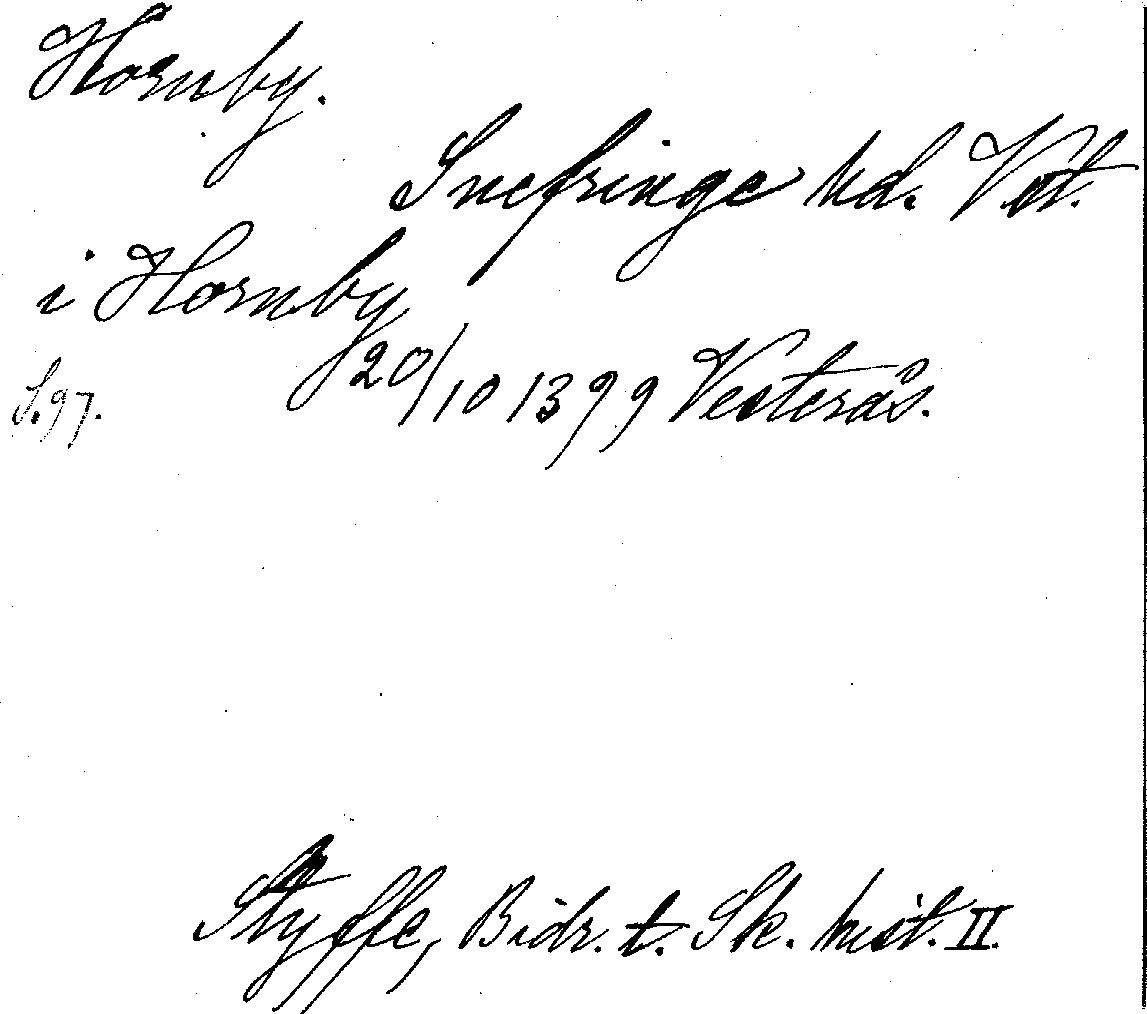 Hornby.
Snefringe hd. Vst.
i Hornby
20/10 1399 Vesterås.
S. 97.
Styffe, Bidr. t. Sk. hist. II.